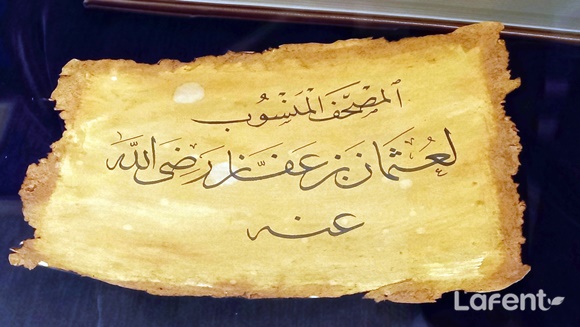 المصحف المنسوب
لعثمان بن عفان رضي الله
عنه
Lafent